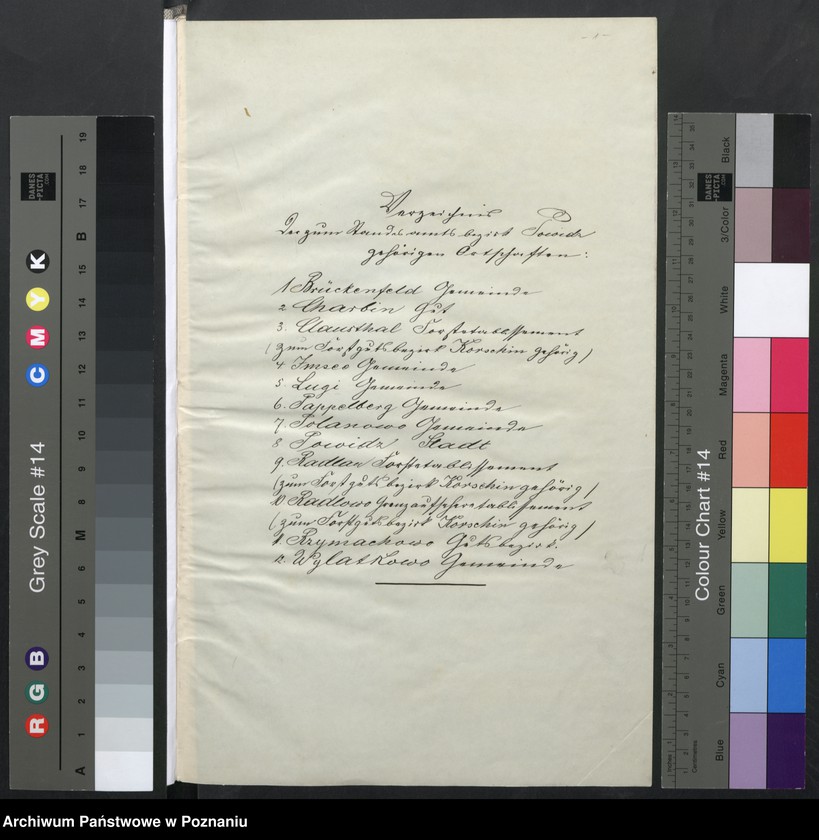 Verzeichnis
der zum Standesamtsbezirk Powidz
gehörigen Ortschaften:
1 Brückenfeld Gemeinde
2 Charbin Gut
3. Clausthal Forstetablissement
(zum Forstgutsbezirk Korschin gehörig)
4 Imsee Gemeinde
5 Lugi Gemeinde
6. Pappelberg Gemeinde
7 Polanowo Gemeinde
8 Powidz Stadt
9. Radlau Forstetablissement
(zum Forstgutsbezirk Korschin gehörig)
10 Radlowo Grenzaufseheretablissement
(zum Forstgutsbezirk Korschin gehörig)
11. Rzymachowo Gutsbezirk.
12. Wylatkowo Gemeinde
Grey Scale #14
DANES
-PICTA
.COM
A 1 2 3 4 5 6 M 8 9 10 11 12 13 14 15 B 17 18 19
R G B C M Y K
Colour Chart #14
DANES
-PICTA
.COM
Blue Cyan Green Yellow Red Magenta White 3/Color Black
Inches
Centimetres
Archiwum Państwowe w Poznaniu